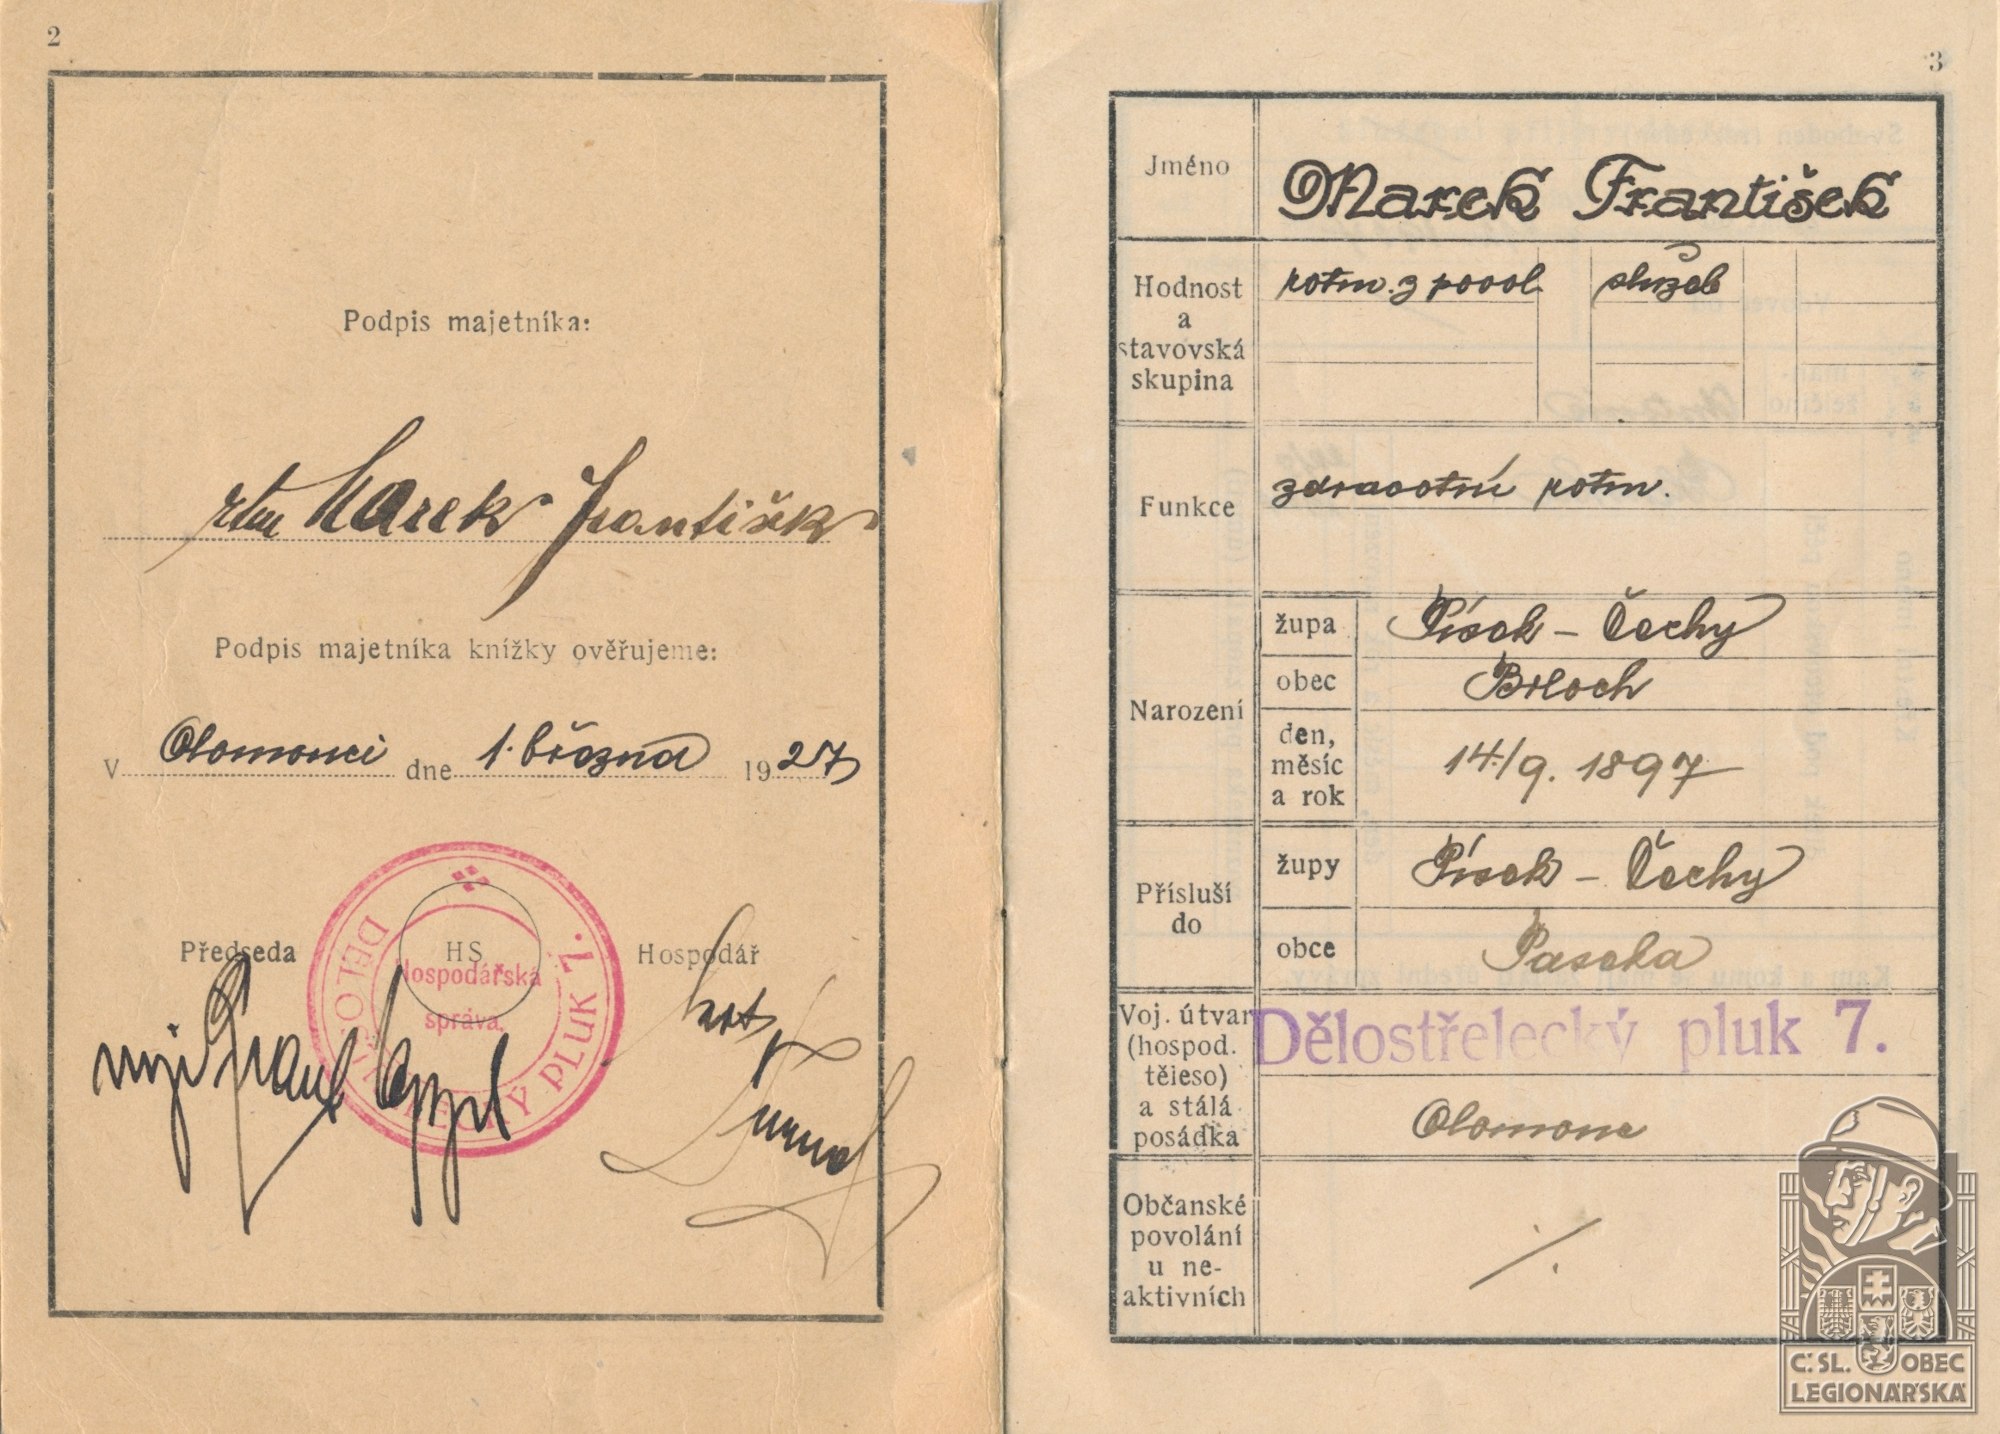 2
Podpis majetníka:
rtm Marek František
Podpis majetníka knížky ověřujeme:
V Olomouci dne 1. března 1927
Předseda HS Hospodář
DĚLOSTŘELECKÝ PLUK 7.
Hospodářská
správa.
3
Jméno Marek František
Hodnost a stavovská skupina
rotm. z povol. služeb
Funkce zdravotní rotm.
Narození
župa Písek – Čechy
obec Brloch
den, měsíc a rok 14./9. 1897
Přísluší do
župy Písek – Čechy
obce Paseka
Voj. útvar (hospod. těleso) a stálá posádka
Dělostřelecký pluk 7.
Olomouc
Občanské povolání u neaktivních
Č. SL. OBEC
LEGIONÁŘSKÁ